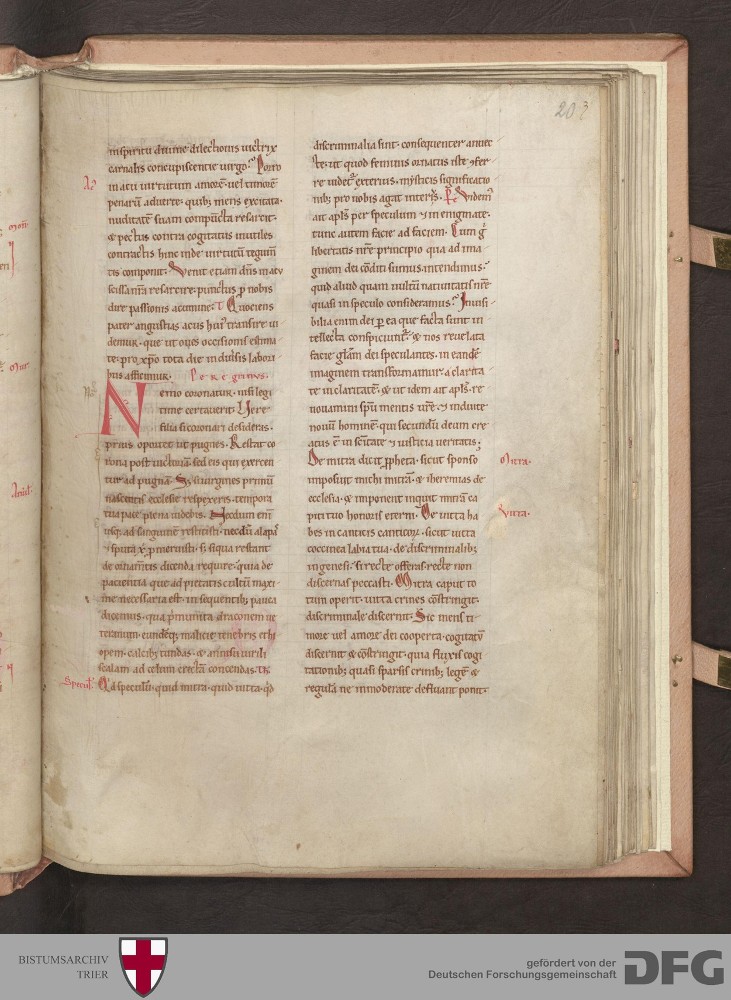 203
in spiritu diuine dilectionis uictrix
carnalis concupiscentie uirgo. Porro
in acu uirtutum amorē uel timorē
penarū aduerte. quib; mens excitata
nuditatē suam compūcta resarcit.
& pectus contra cogitatus inutiles
contractis hinc inde uirtutū tegum̄
tis componit. Venit etiam dn̄s in acu
scissa nr̄a resarcire. punctus p̄ nobis
dire passionis acumine. T Quociens
pater angustias acus hui᷒ transire ui
demur. que ut oues occisionis estima
te. pro xp̄o tota die induīsis labori
bus afficimur. Peregrinus.
Nemo coronatur. nisi legi
time certauerit. Vere
filia si coronari desideras.
prius oportet ut pugnes. Restat co
rona post uictoriā. sed eis qui exercen
tur ad pugnā. Si uirgines primū
nascentis ecclesie respexeris. tempora
tua pace plena uidebis. Necdum enī
usq; ad sanguinē restitisti. necdū alapas
& sputa x̄. p̄meruisti. s; siqua restant
de ornam̄tis dicenda require. quia de
pacientia que ad pietatis cultū maxi
me necessaria est. in sequentib; pauca
dicemus. qua p̄munita draconem ue
ternum. eundēq; malicie tenebris ethi
opem. calcib; tundas. & annisu uirili
scalam ad celum erectā conscendas. TH
Specul̄. Qd̄ speculū. quid mitra. quid uitta. qd̄
discriminalia sint. consequenter annec
te. ut quod feminis ornatus iste ꝯfer
re uidet᷒ exterius. mysticis significatio
nib; pro nobis agat interi᷒. Videm᷒
ait apls̄ per speculum & in enigmate.
tunc autem facie ad faciem. Cum g̊
libertatis nr̄e principio qua ad ima
ginem dei cōditi sumus intendimus.
quid aliud quam uultū natiuitatis nr̄e
quasi in speculo consideramus? Inuisi
bilia enim dei ꝑ ea que facta sunt in
tellecta conspiciunt᷒. & nos reuelata
facie gl̄am dei speculantes. in eandē
imaginem transformamur a clarita
te in claritatē. & ut idem ait apls̄. re
nouamini spū mentis ur̄e. & induite
nouū hominē. qui secundū deum cre
atus ē in sc̄itate & iusticia ueritatis;
De mitra dicit ꝓpheta. sicut sponso Mitra.
imposuit michi mitrā. & iheremias de
ecclesia. & imponent inquit mitrā ca
piti tuo honoris eterni. De uitta ha Vitta.
bes in canticis canticoꝝ. sicut uitta
coccinea labia tua. de discriminalib;
in genesi. si recte offeras. recte non
discernas peccasti. Mitra caput to
tum operit. uitta crines cōstringit.
discriminale discernit. Sic mens ti
more uel amore dei cooperta. cogitatū
discernit & cōstringit. quia fluxis cogi
tationib; quasi sparsis crinib; legē &
regulā ne inmoderate defluant ponit.
BISTUMSARCHIV
TRIER
gefördert von der
Deutschen Forschungsgemeinschaft
DFG